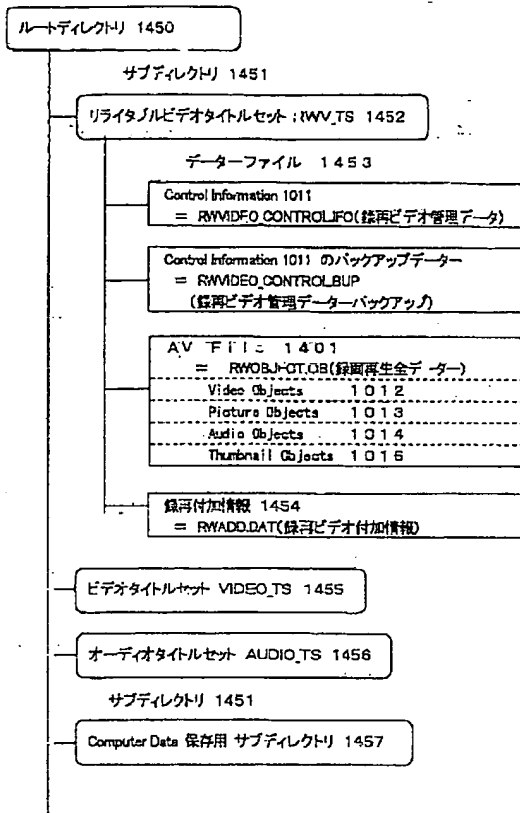 ルートディレクトリ 1450
サブディレクトリ 1451
リライタブルビデオタイトルセット ;RWV_TS 1452
データーファイル 1453
Control Information 1011
= RWVIDEO_CONTROL.IFO(録再ビデオ管理データ)
Control Information 1011 のバックアップデーター
= RWVIDEO_CONTROL.BUP
(録再ビデオ管理データーバックアップ)
AV File 1401
= RWOBJECT.OB(録画再生全データー)
Video Objects 1012
Picture Objects 1013
Audio Objects 1014
Thumbnail Objects 1016
録再付加情報 1454
= RWADD.DAT(録再ビデオ付加情報)
ビデオタイトルセット VIDEO_TS 1455
オーディオタイトルセット AUDIO_TS 1456
サブディレクトリ 1451
Computer Data 保存用 サブディレクトリ 1457